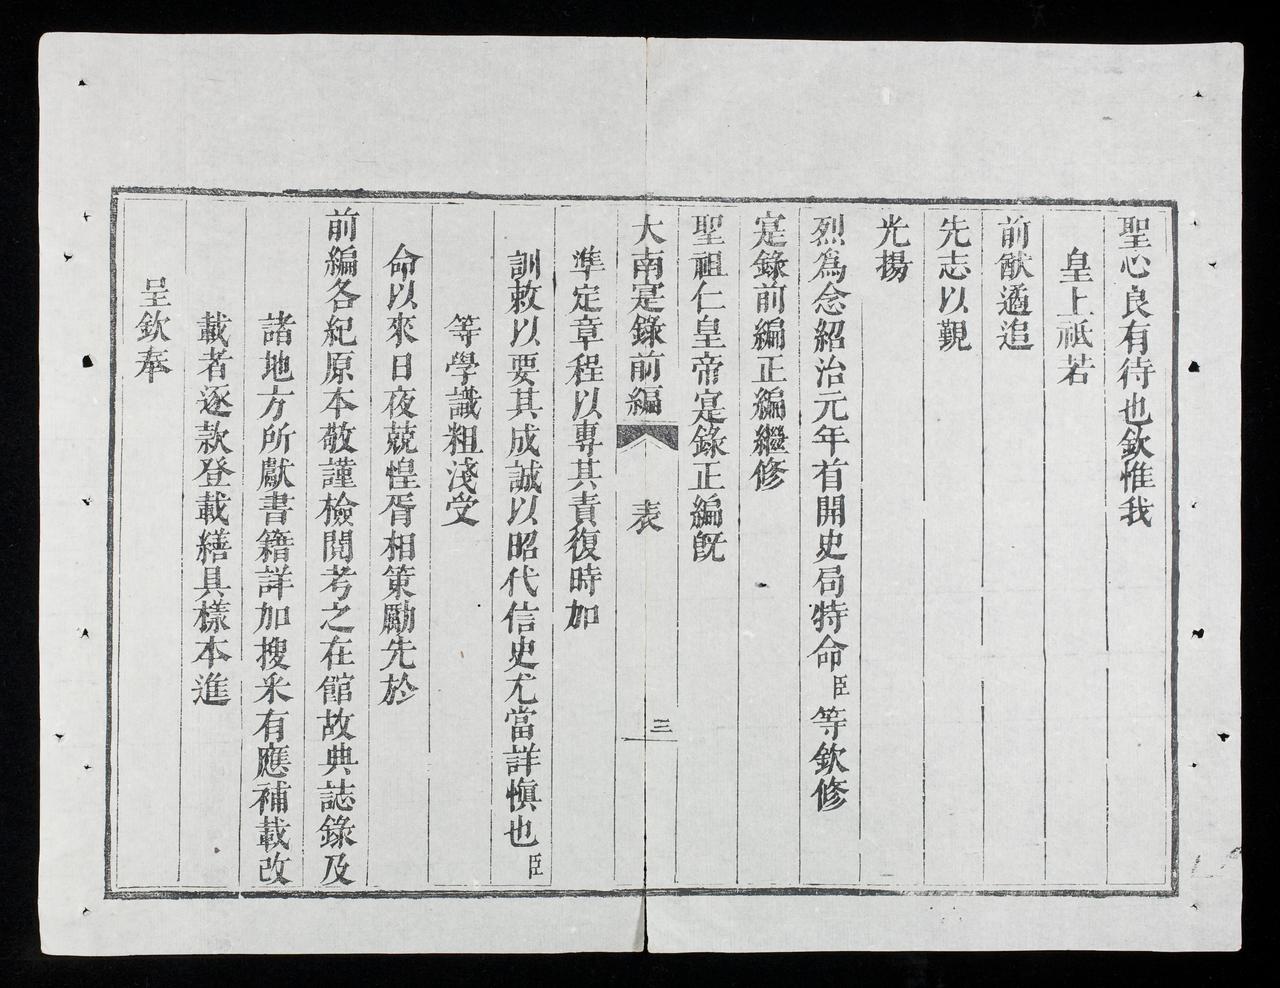 聖心良有待也欽惟我
皇上祗若
前猷遹追
先志以覲
光揚
烈為念紹治元年首開史局特命臣等欽修
寔錄前編正編繼修
聖祖仁皇帝寔錄正編旣
大南寔錄前編 表 三
準定章程以專其責復時加
訓敕以要其成誠以昭代信史尤當詳愼也臣
等學識粗淺受
命以來日夜兢惶胥相策勵先於
前編各紀原本敬謹檢閱考之在館故典誌錄及
諸地方所獻書籍詳加搜釆有應補載改
載者逐款登載繕具樣本進
呈欽奉